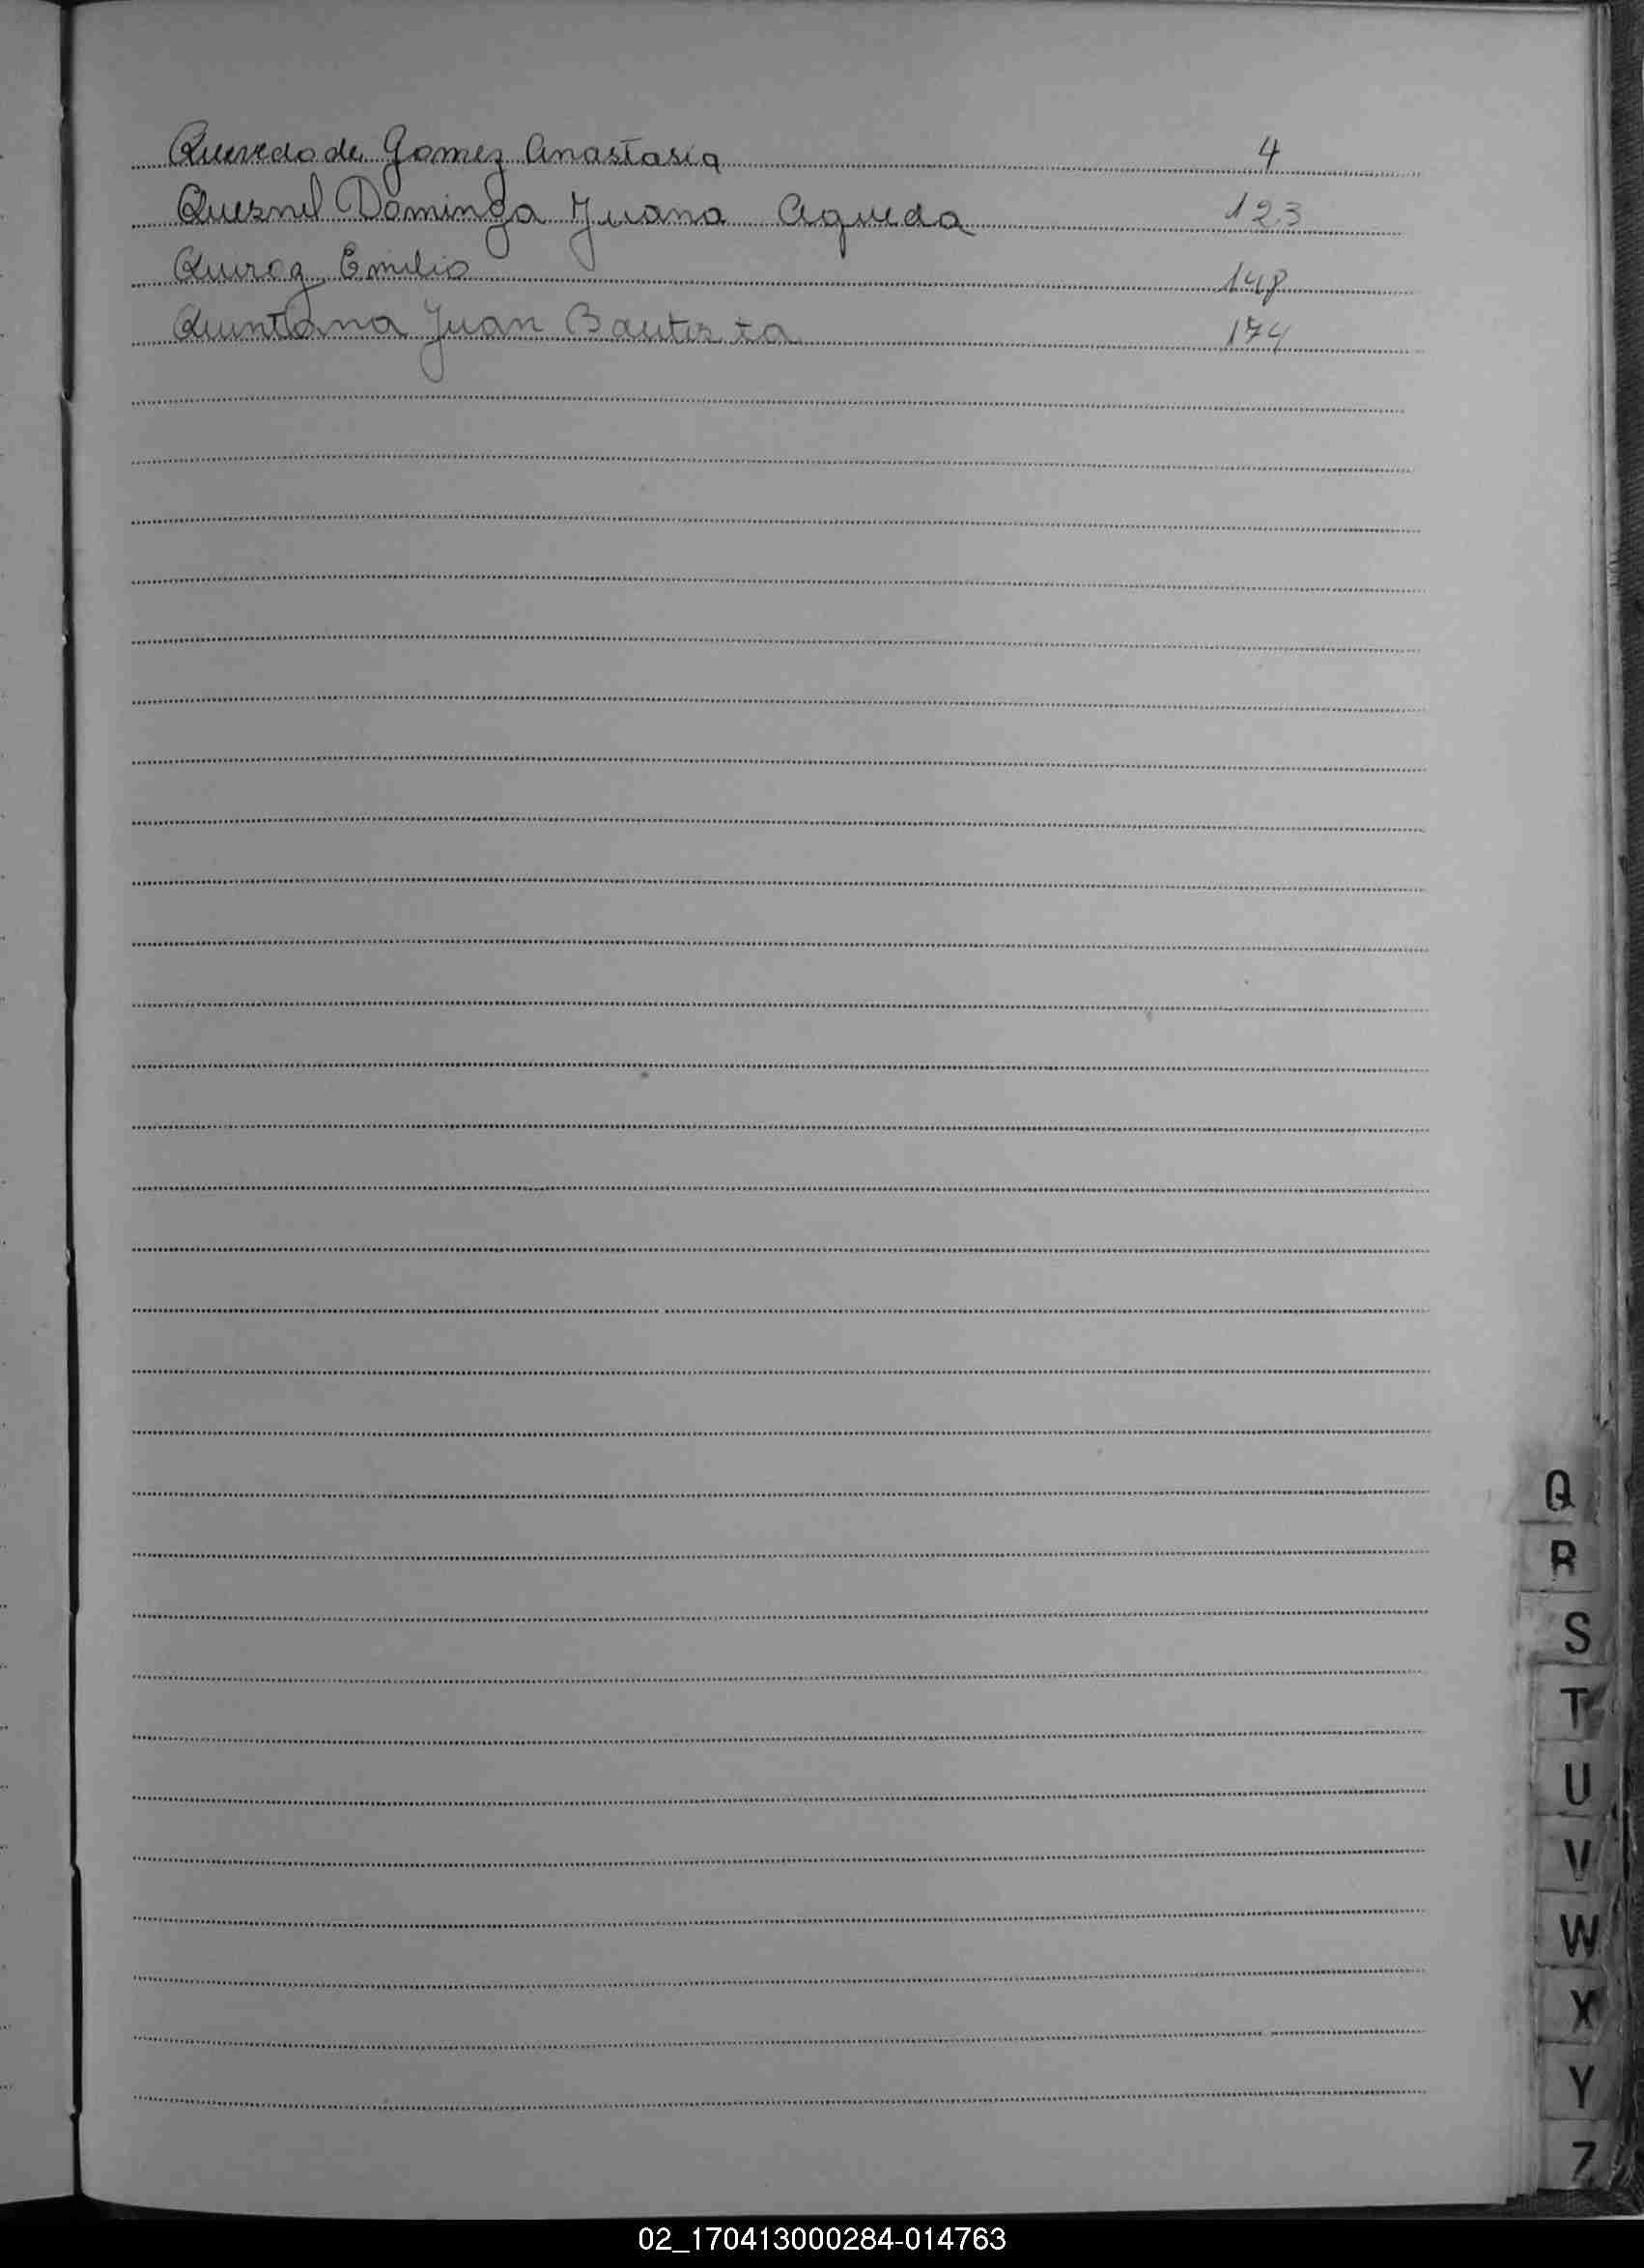 Quevedo de Gomez Anastasia 4
Quesnel Dominga Juana Agueda 123
Quiroz Emilio 148
Quintana Juan Bautista 174
Q
R
S
T
U
V
W
X
Y
Z
02_170413000284-014763